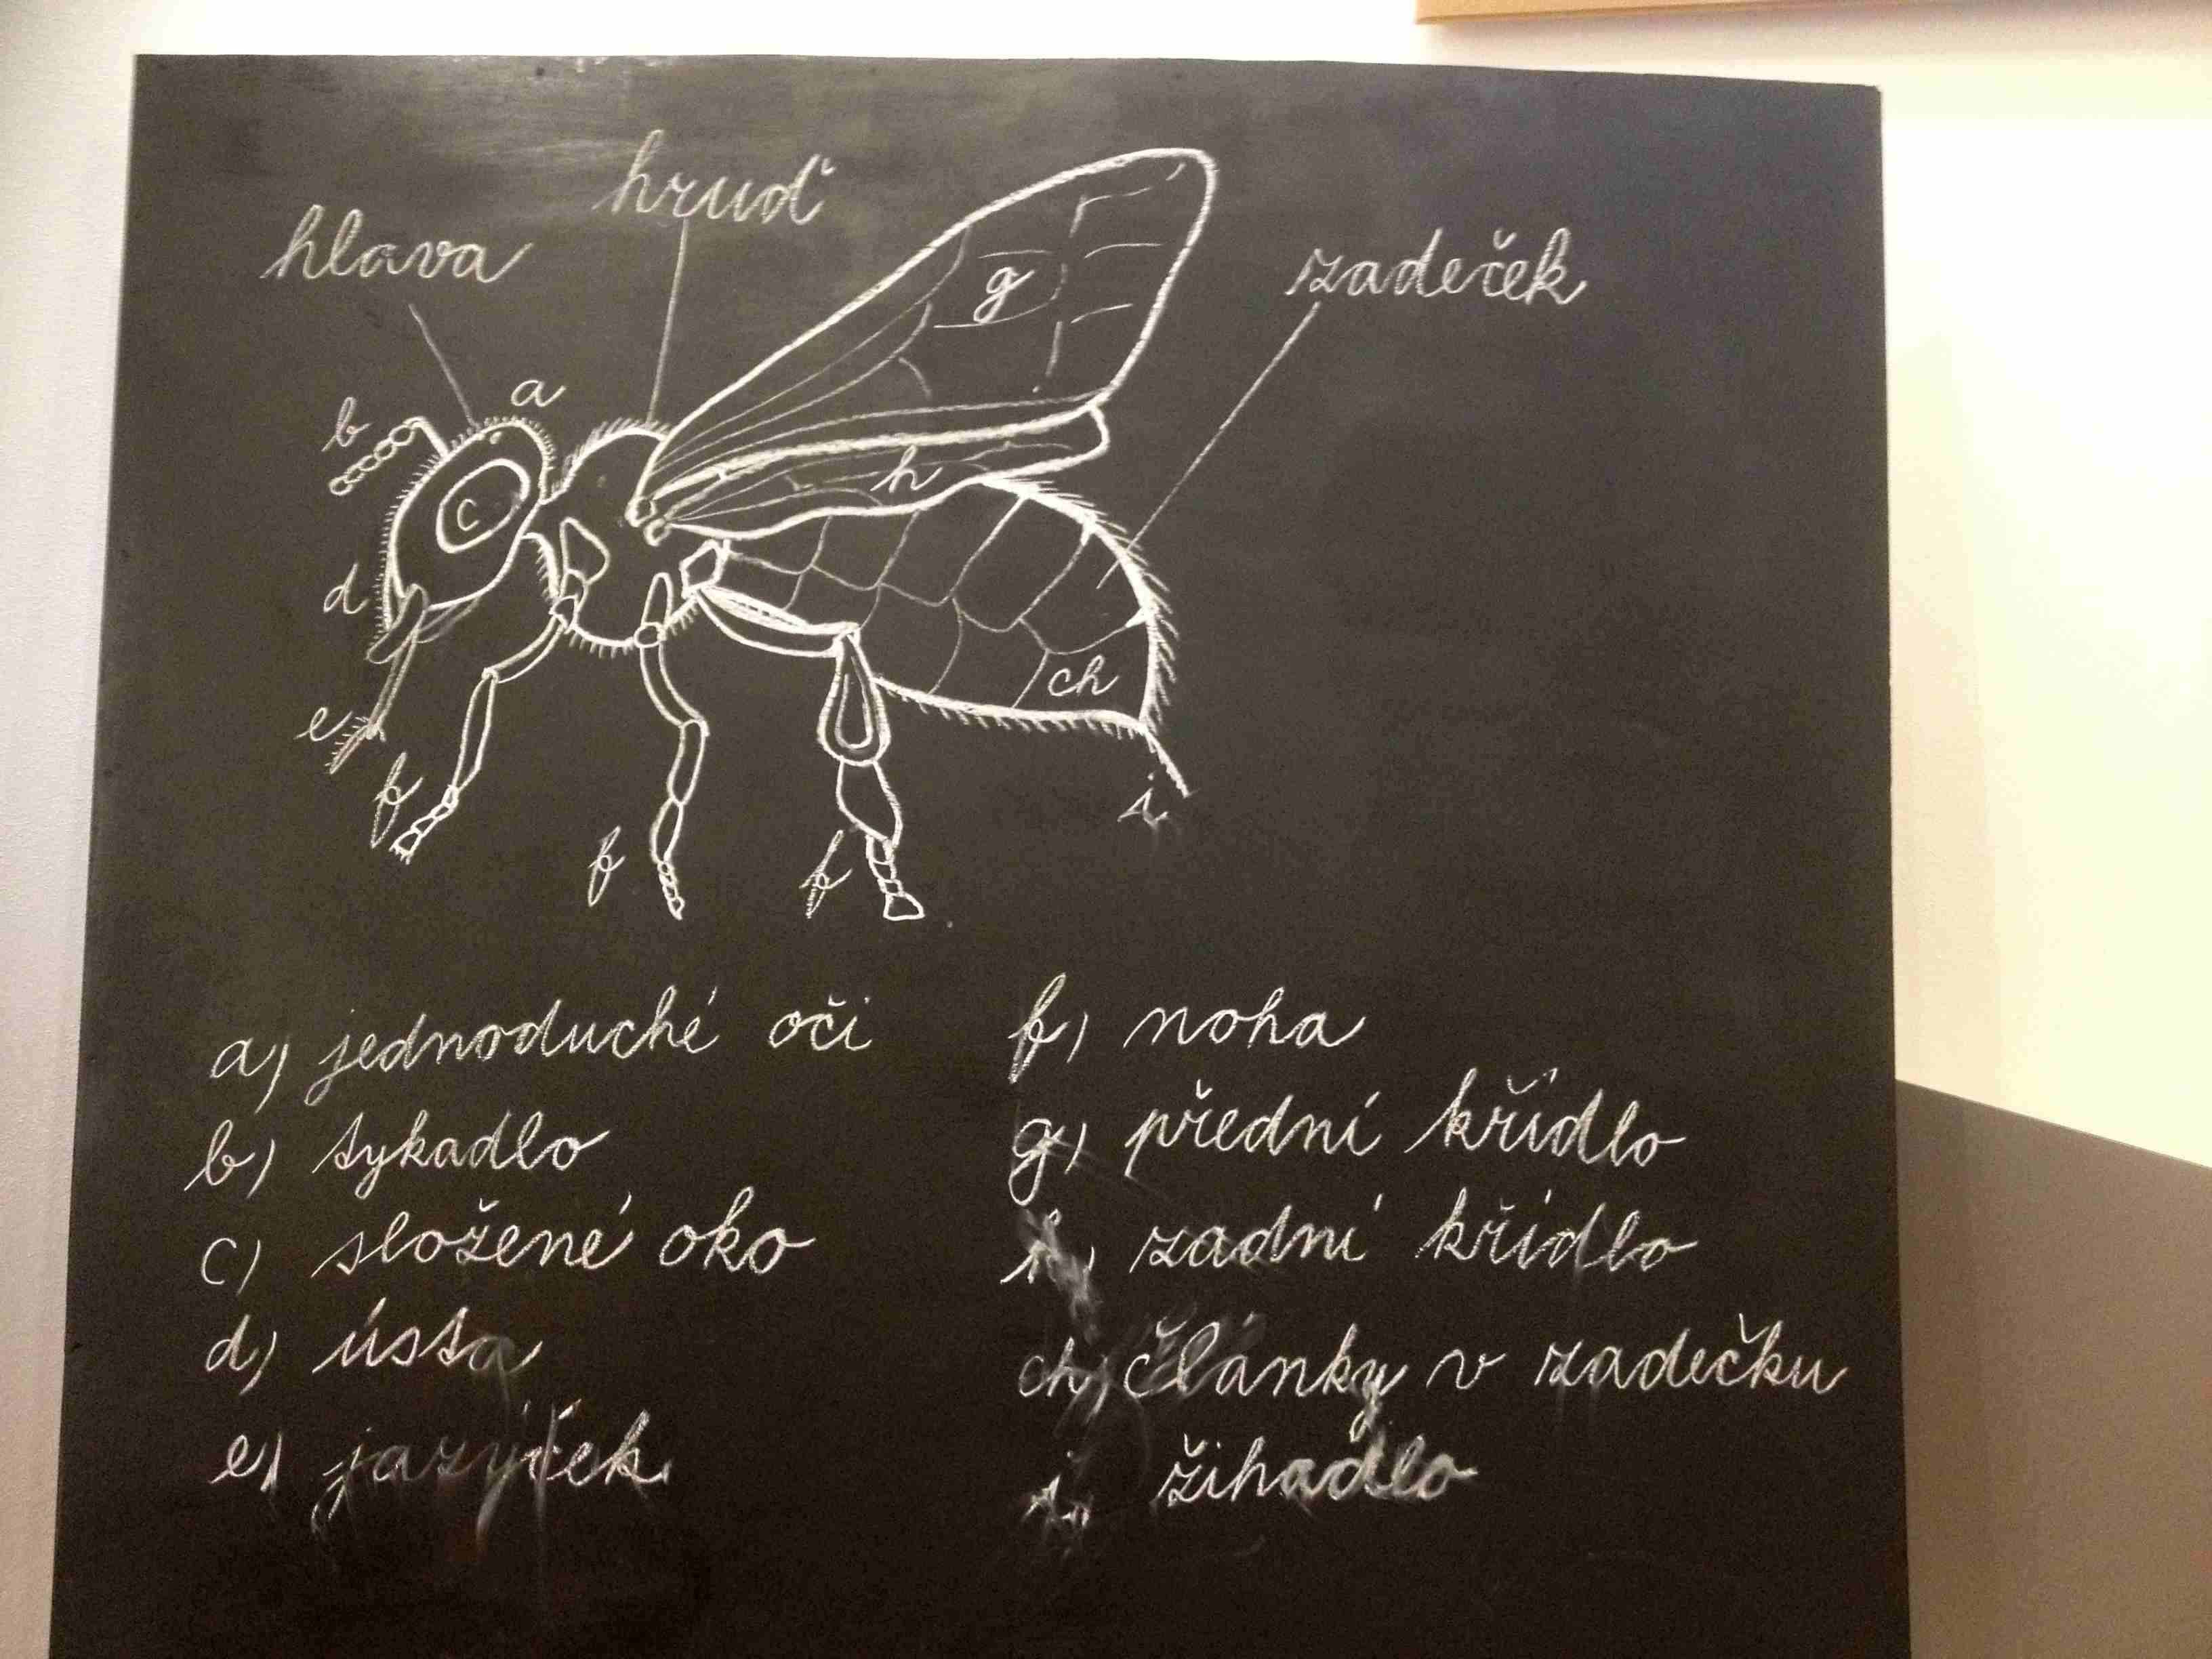 hlava
hruď
zadeček
a
b
c
d
e
f
f
f
g
h
ch
i
a) jednoduché oči
b) tykadlo
c) složené oko
d) ústa
e) jazýček
f) noha
g) přední křídlo
h) zadní křídlo
ch) články v zadečku
i) žihadlo